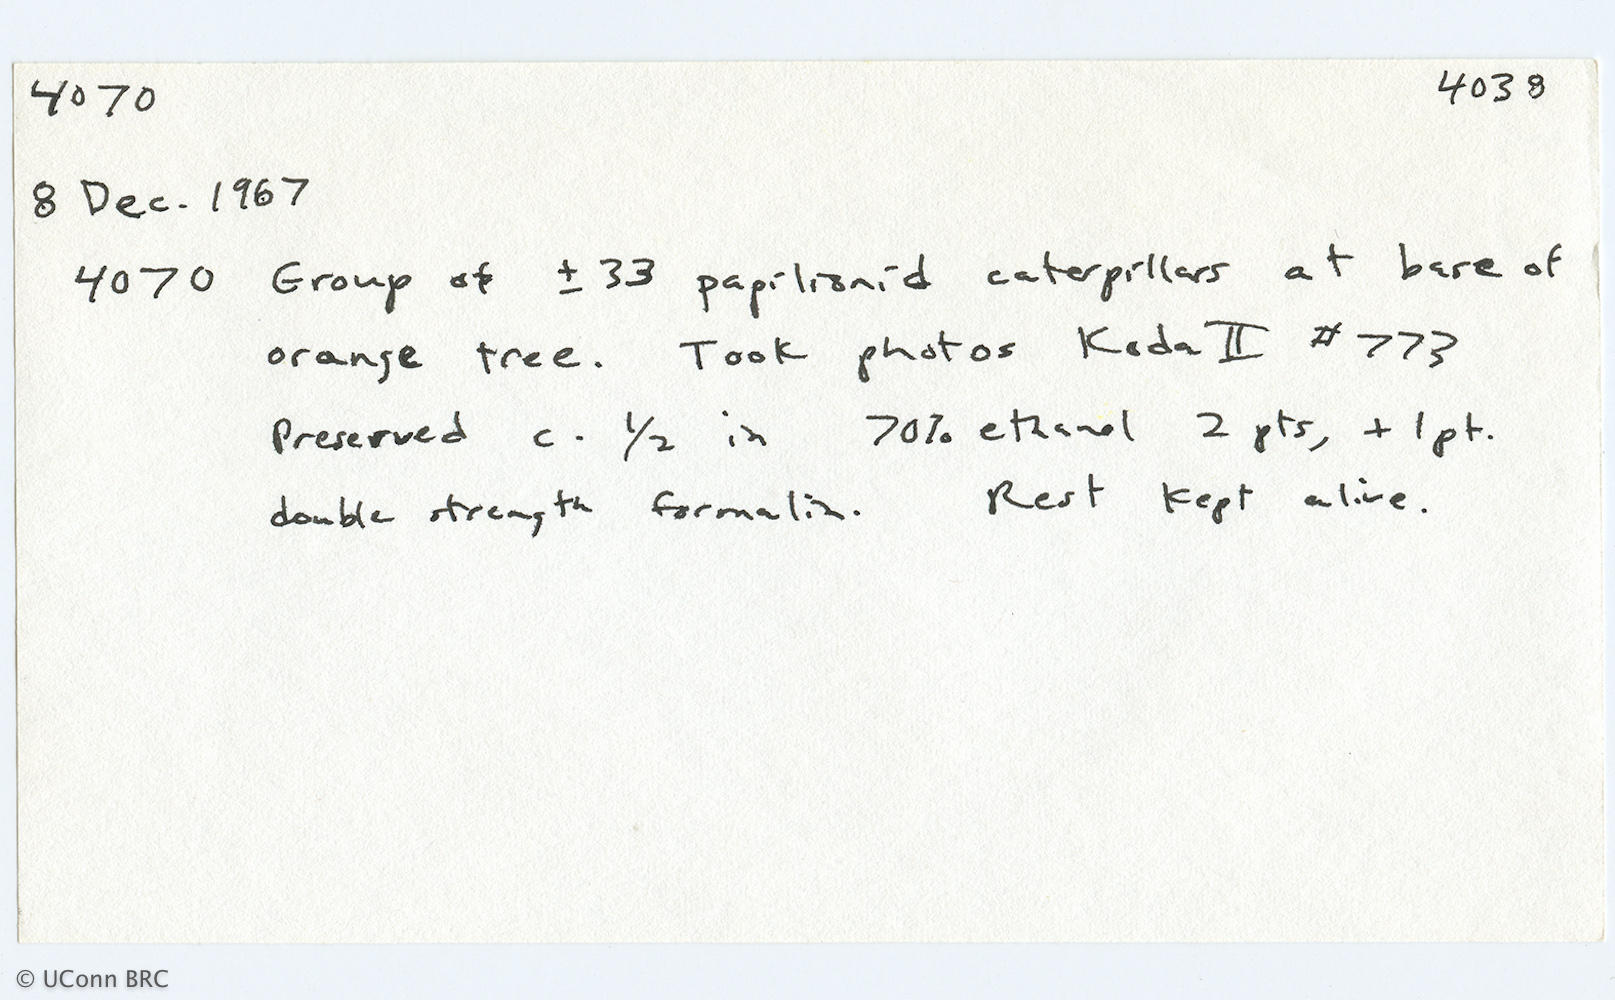 4070 4038
8 Dec. 1967
4070 Group of ± 33 papilionid caterpillars at base of
orange tree. Took photos Koda II # 773
Preserved c. 1/2 in 70% ethanol 2 pts, + 1 pt.
double strength formalin. Rest kept alive.
© UConn BRC